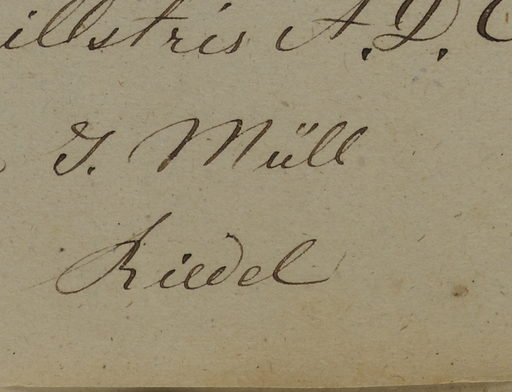 illstris A. D. C
J. Müll
Riedel